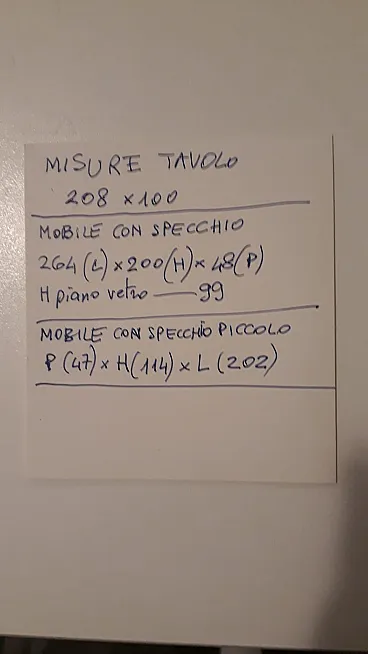 MISURE TAVOLO
208 x 100
MOBILE CON SPECCHIO
264 (L) x 200 (H) x 48 (P)
H piano vetro — 99
MOBILE CON SPECCHIO PICCOLO
P (47) x H (114) x L (202)